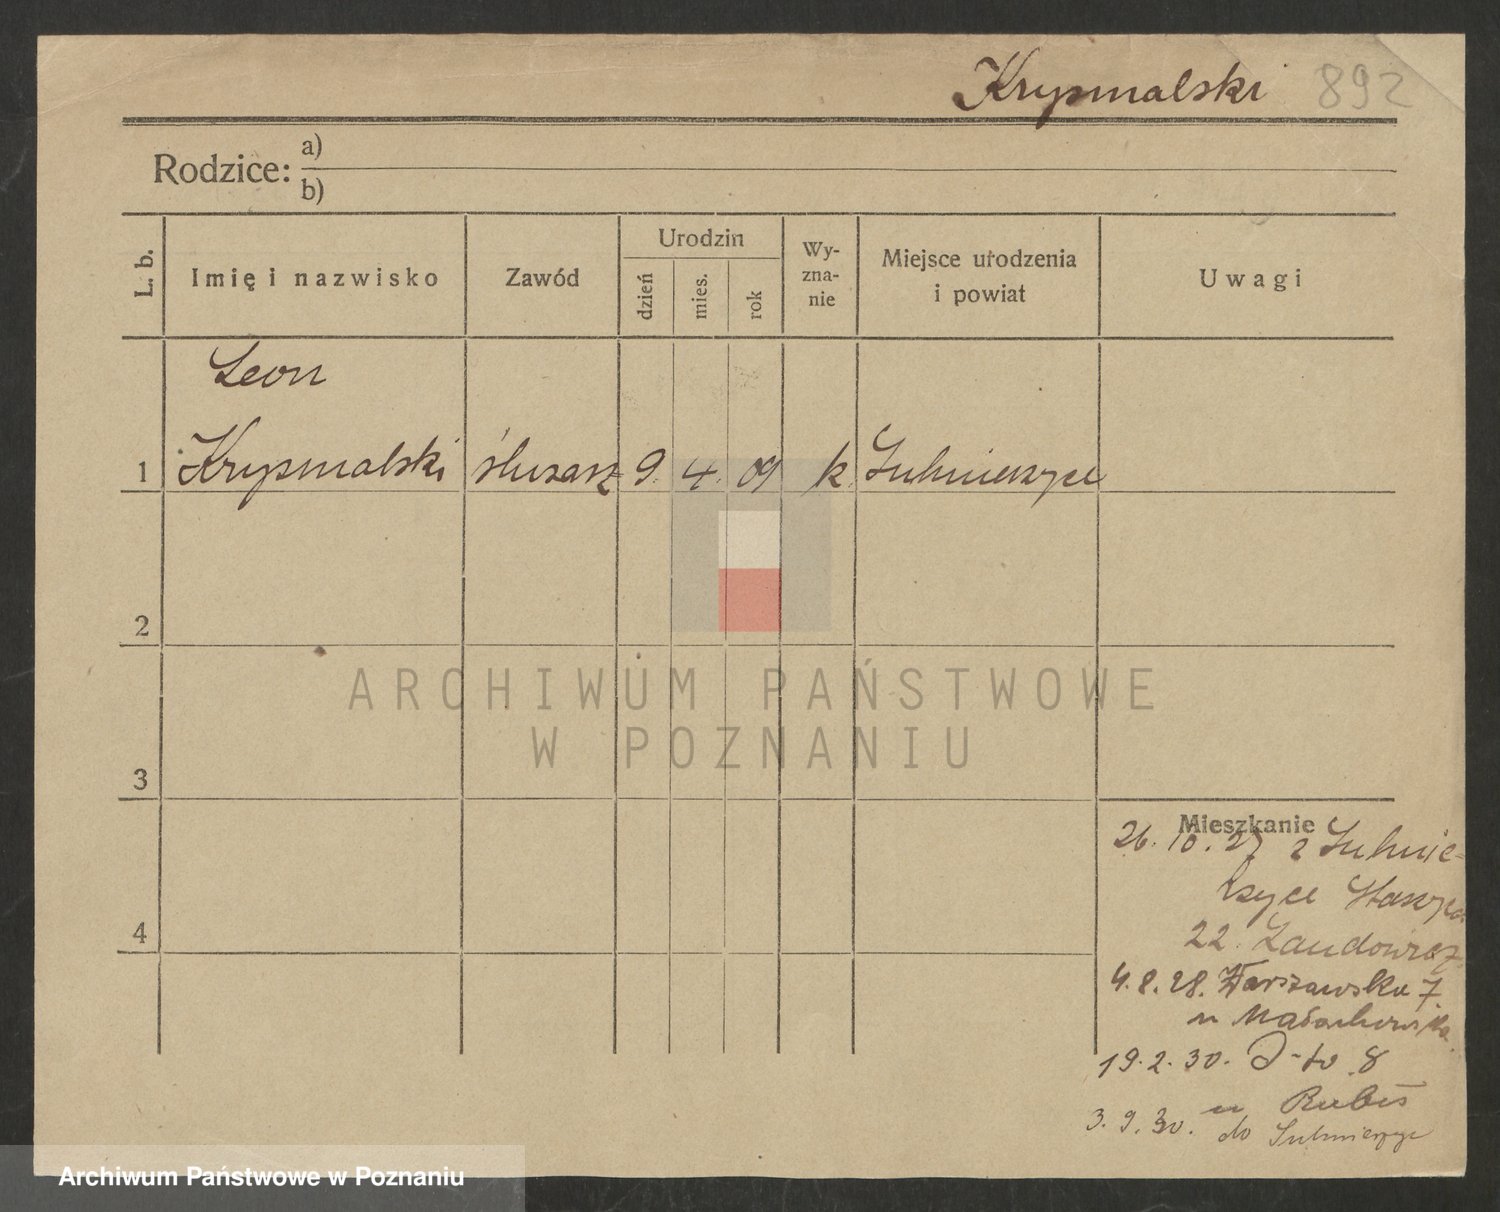 Krysmalski 892
Rodzice: a)
b)
L. b.
Imię i nazwisko
Zawód
Urodzin
dzień
mies.
rok
Wy-
zna-
nie
Miejsce urodzenia
i powiat
Uwagi
Leon
1 Krysmalski ślusarz 9. 4. 09 k. Sulmierzyce
2
3
4
ARCHIWUM PAŃSTWOWE
W POZNANIU
Mieszkanie
26. 10. 27 z Sulmie-
rzyce
22.
4. 8. 28. Warszawska 7.
u
19. 2. 30. D-to 8
u Rubiś
3. 9. 30. do Sulmierzyc
Archiwum Państwowe w Poznaniu